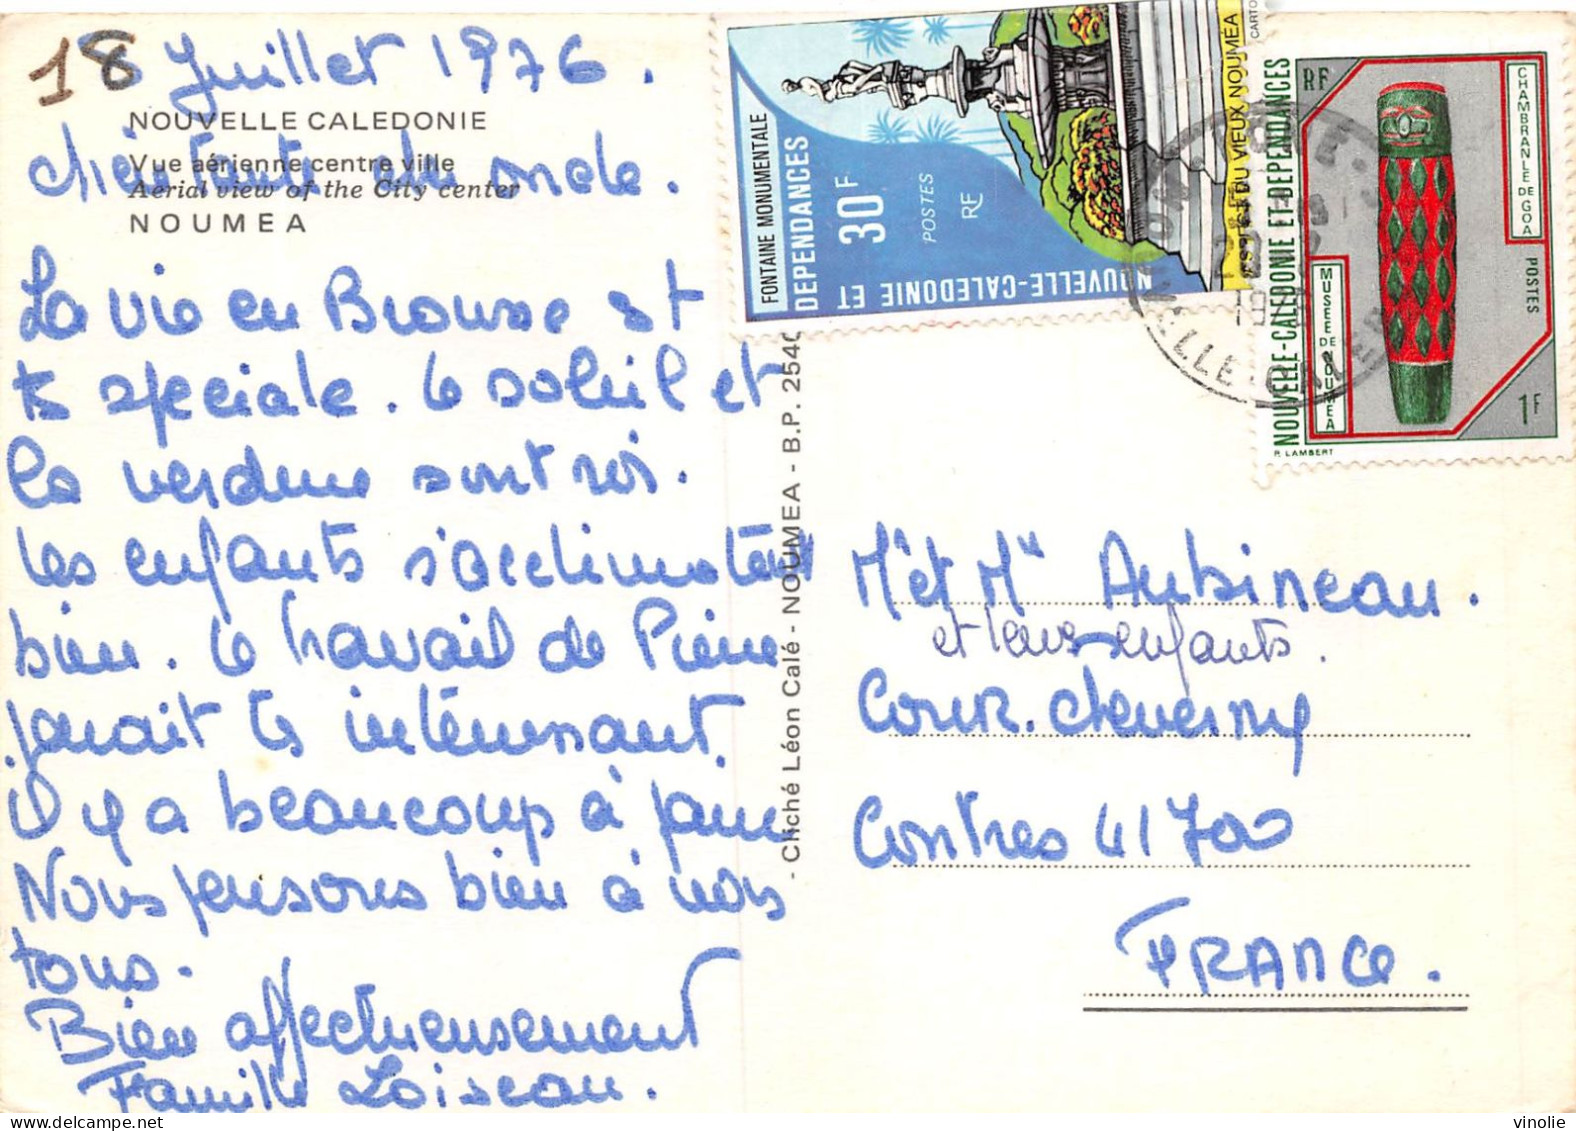 18 Juillet 1976.
NOUVELLE CALEDONIE
chère tante, cher oncle.
Vue aérienne centre ville
Aerial view of the City center
NOUMEA
La vie en Brousse est
ts speciale. le soleil et
la verdure sont rois.
Les enfants s'acclimatent
bien. le travail de Pierre
parait ts intéressant.
il y a beaucoup à faire
Nous pensons bien à vous
tous.
Bien affectueusement
Famille Loiseau.
- Cliché Léon Calé - NOUMEA - B.P. 2540
FONTAINE MONUMENTALE
NOUVELLE-CALEDONIE ET DEPENDANCES
30F
POSTES
RF
DU VIEUX NOUMÉA
CARTO
RF
NOUVELLE-CALEDONIE ET DEPENDANCES
MUSEE DE NOUMÉA
CHAMBRANLE DE GOA
POSTES
1F
P. LAMBERT
Mr et Me Aubineau.
et leurs enfants.
Cour. cheverny
Contres 41700
FRANCE.
vinolie